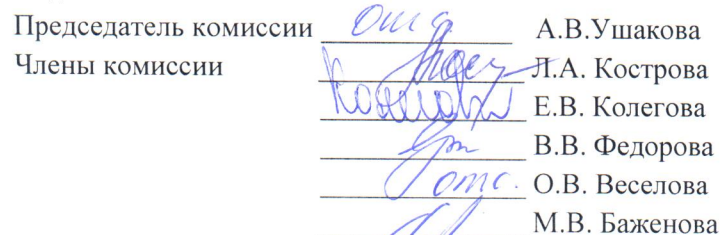 Председатель комиссии отс. А.В.Ушакова
Члены комиссии Л.А. Кострова
Е.В. Колегова
В.В. Федорова
отс. О.В. Веселова
М.В. Баженова